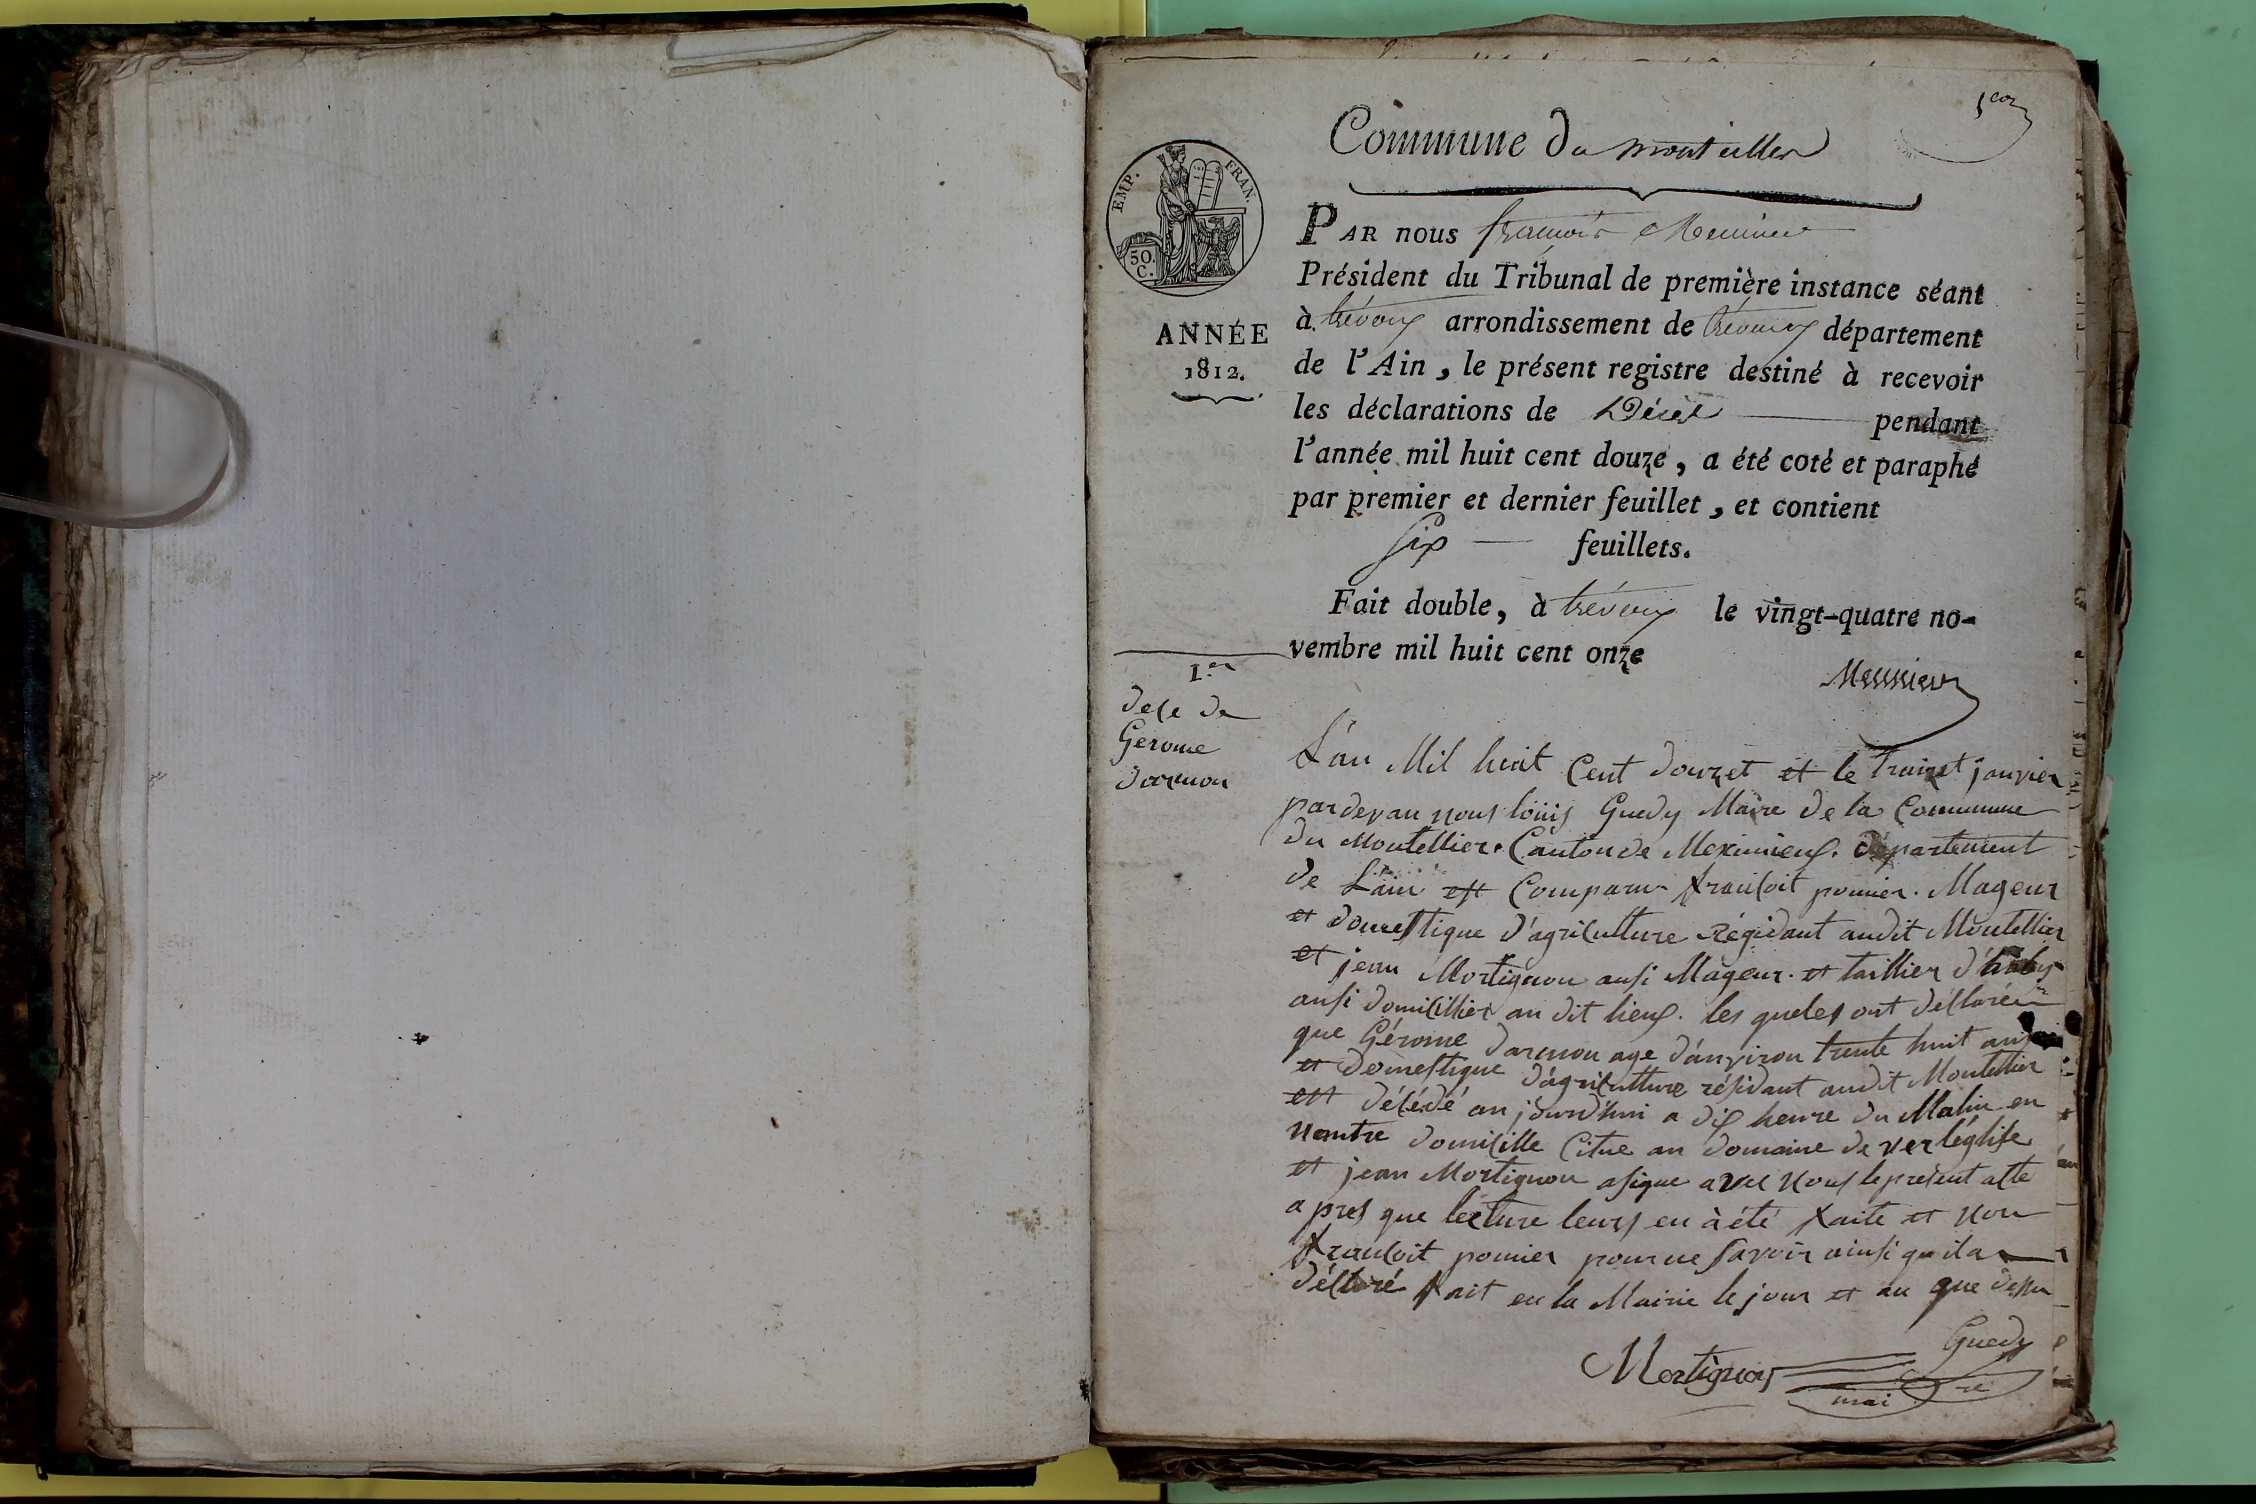 1er
Commune du montellier
EMP. FRAN.
50.
C.
ANNÉE
1812.
PAR nous françois Messnier
Président du Tribunal de première instance séant
à trévoux arrondissement de trévoux département
de l'Ain, le présent registre destiné à recevoir
les déclarations de Décès pendant
l'année mil huit cent douze, a été coté et paraphé
par premier et dernier feuillet, et contient
six feuillets.
Fait double, à trévoux le vingt-quatre no-
vembre mil huit cent onze
Messnier
1.er
dece de
Gerome
darmon
L'an Mil huit Cent douzet et le traizet janvier
pardevan nous loüis Guedy Maire de la Commune
du Montellier. Canton de Meximieux. département
de L'ain est Comparu francoit pomier. Mageur
et domestique d'agriculture régidant audit Montellier
et jean Mortignon ausi Mageur. et taillier d'habys
ausi domicillier au dit lieux. les queles ont déclaré
que Gérome darmon age d'anviron trente huit ans
et domestique d'agriculture résidant audit Montellier
est décédé au jourd'hui a dix heure du Matin en
nontre domicille Citue au domaine de verléglise
et jean Mortignon asigne avec nous le présent acte
a pres que lecture leurs en à été faite et non
francoit pomier pour ne savoir ainsi qu'il a
déclaré fait en la Mairie le jour et an que dessu
Mortignon Guedy
maire